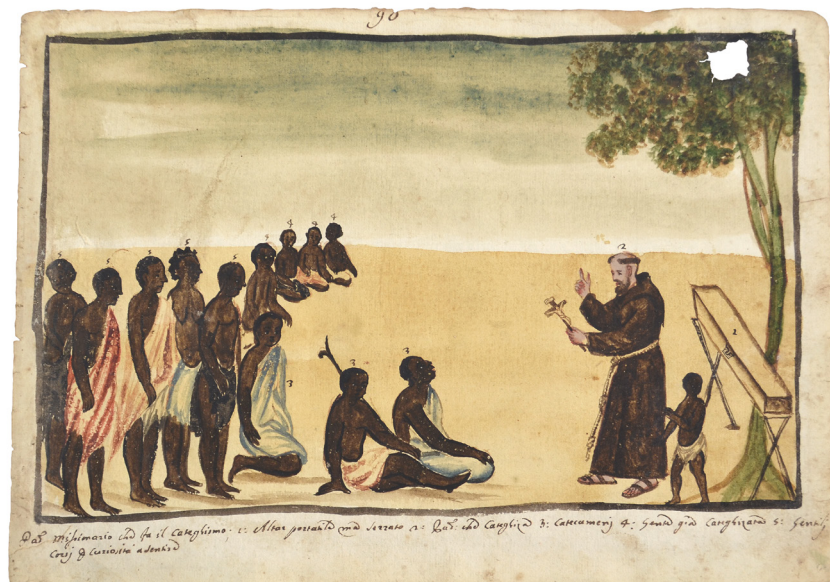 90
4 4 4
5 5 5 5 5 5
2
3
3
3
Missionario che fa il Categhismo. 1: Altar portatile mà serrato 2: che Categhiza 3: Catecumenj 4: Gente già Categhizata 5: Gentilj
Corsj curiosità a sentire